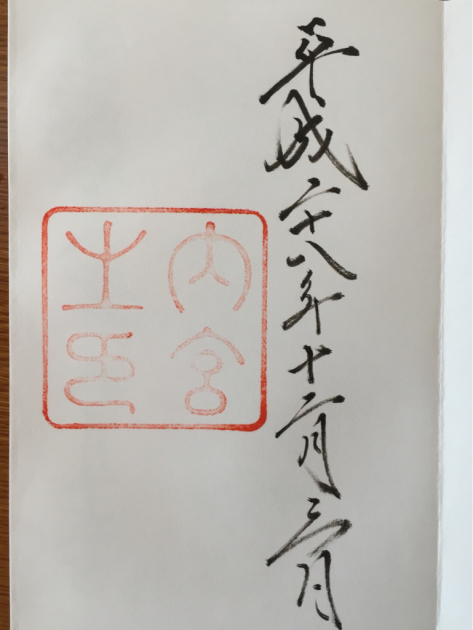 平成二十八年十二月三日
内宮
之印